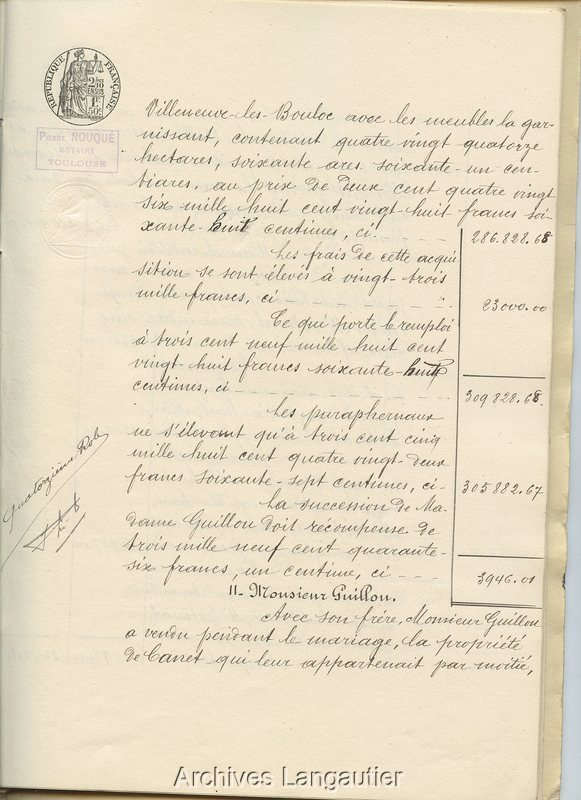 RÉPUBLIQUE FRANÇAISE
2/10
EN SUS
1F
50c
PIERRE NOUQUÉ
NOTAIRE
TOULOUSE
Villeneuve-les-Bouloc avec les meubles la gar-
nissant, contenant quatre vingt quatorze
hectares, soixante ares soixante-un cen-
tiares, au prix de deux cent quatre vingt
six mille huit cent vingt-huit francs soi-
xante-huit centimes, ci - - - 286.828.68
Les frais de cette acqui
sition se sont élevés à vingt-trois
mille francs, ci - - - 23000.00
Ce qui porte le remploi
à trois cent neuf mille huit cent
vingt-huit francs soixante-huit
centimes, ci - - - 309828.68
Les paraphernaux
ne s'élevant qu'à trois cent cinq
mille huit cent quatre vingt-deux
francs soixante-sept centimes, ci- 305882.67
La succession de Ma-
dame Guillon doit récompense de
trois mille neuf cent quarante-
six francs, un centime, ci - - - 3946.01
II- Monsieur Guillon.
Avec son frère, Monsieur Guillon
a vendu pendant le mariage, la propriété
de Canet qui leur appartenait par moitié,
Quatorzième Rôle
Archives Langautier